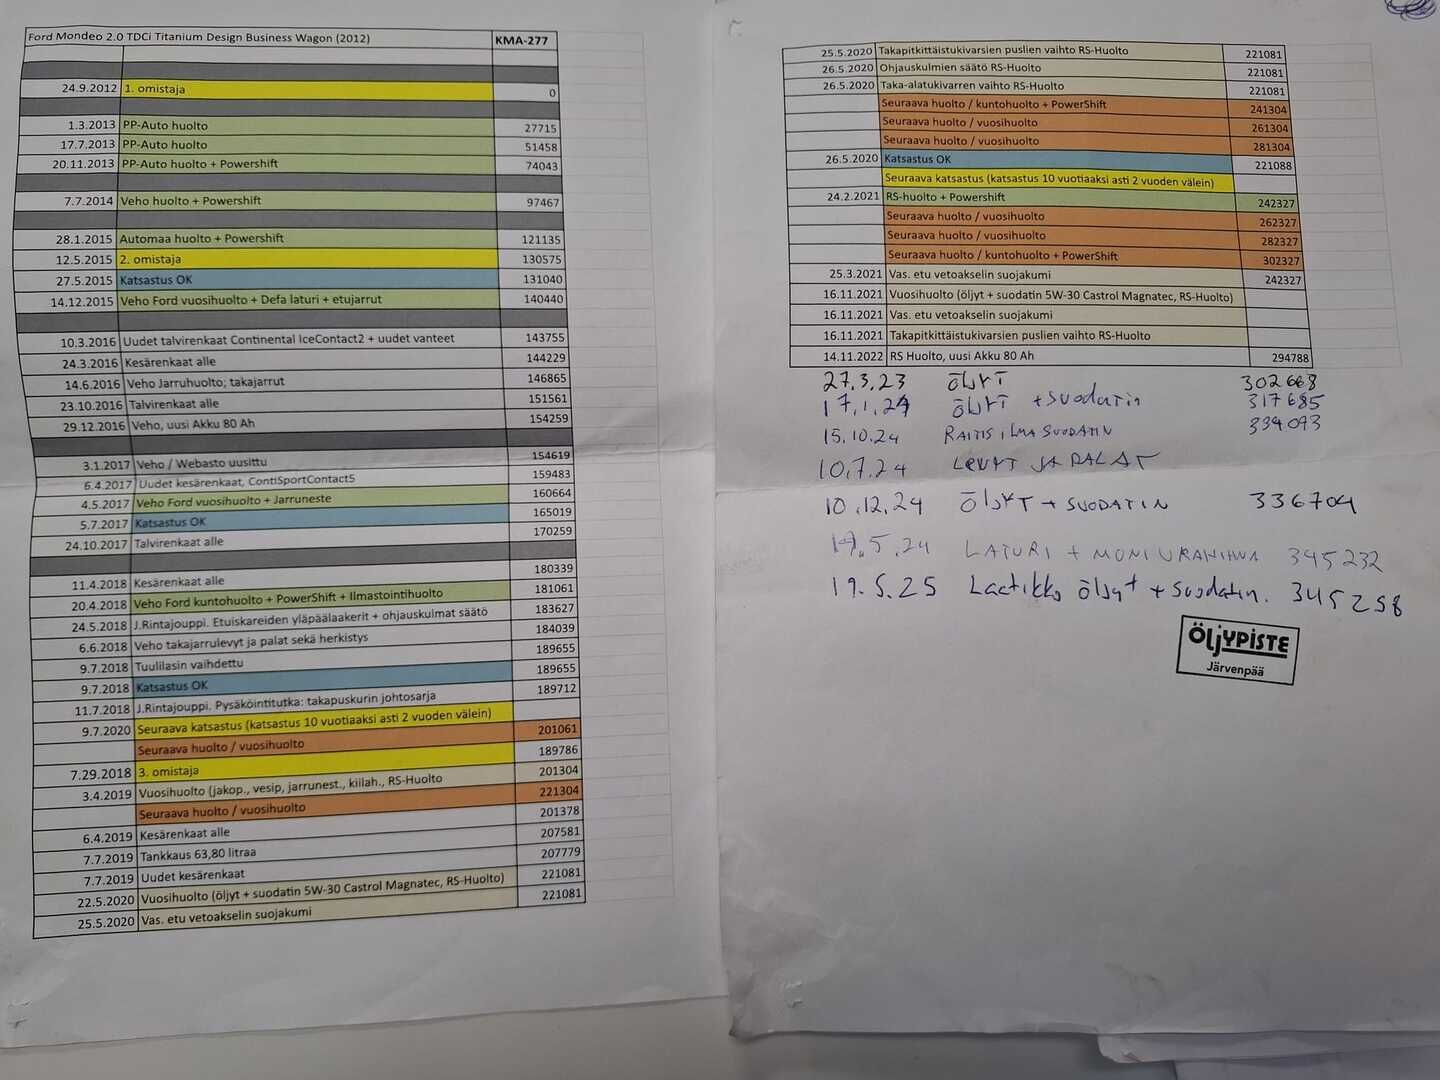 Ford Mondeo 2.0 TDCi Titanium Design Business Wagon (2012) KMA-277
24.9.2012 1. omistaja 0
1.3.2013 PP-Auto huolto 27715
17.7.2013 PP-Auto huolto 51458
20.11.2013 PP-Auto huolto + Powershift 74043
7.7.2014 Veho huolto + Powershift 97467
28.1.2015 Automaa huolto + Powershift 121135
12.5.2015 2. omistaja 130575
27.5.2015 Katsastus OK 131040
14.12.2015 Veho Ford vuosihuolto + Defa laturi + etujarrut 140440
10.3.2016 Uudet talvirenkaat Continental IceContact2 + uudet vanteet 143755
24.3.2016 Kesärenkaat alle 144229
14.6.2016 Veho Jarruhuolto; takajarrut 146865
23.10.2016 Talvirenkaat alle 151561
29.12.2016 Veho, uusi Akku 80 Ah 154259
3.1.2017 Veho / Webasto uusittu 154619
6.4.2017 Uudet kesärenkaat, ContiSportContact5 159483
4.5.2017 Veho Ford vuosihuolto + Jarruneste 160664
5.7.2017 Katsastus OK 165019
24.10.2017 Talvirenkaat alle 170259
11.4.2018 Kesärenkaat alle 180339
20.4.2018 Veho Ford kuntohuolto + PowerShift + Ilmastointihuolto 181061
24.5.2018 J.Rintajouppi. Etuiskareiden yläpäälaakerit + ohjauskulmat säätö 183627
6.6.2018 Veho takajarrulevyt ja palat sekä herkistys 184039
9.7.2018 Tuulilasin vaihdettu 189655
9.7.2018 Katsastus OK 189655
11.7.2018 J.Rintajouppi. Pysäköintitutka: takapuskurin johtosarja 189712
9.7.2020 Seuraava katsastus (katsastus 10 vuotiaaksi asti 2 vuoden välein)
Seuraava huolto / vuosihuolto 201061
7.29.2018 3. omistaja 189786
3.4.2019 Vuosihuolto (jakop., vesip, jarrunest., kiilah., RS-Huolto 201304
Seuraava huolto / vuosihuolto 221304
6.4.2019 Kesärenkaat alle 201378
7.7.2019 Tankkaus 63,80 litraa 207581
7.7.2019 Uudet kesärenkaat 207779
22.5.2020 Vuosihuolto (öljyt + suodatin 5W-30 Castrol Magnatec, RS-Huolto) 221081
25.5.2020 Vas. etu vetoakselin suojakumi 221081
25.5.2020 Takapitkittäistukivarsien puslien vaihto RS-Huolto 221081
26.5.2020 Ohjauskulmien säätö RS-Huolto 221081
26.5.2020 Taka-alatukivarren vaihto RS-Huolto 221081
Seuraava huolto / kuntohuolto + PowerShift 241304
Seuraava huolto / vuosihuolto 261304
Seuraava huolto / vuosihuolto 281304
26.5.2020 Katsastus OK 221088
Seuraava katsastus (katsastus 10 vuotiaaksi asti 2 vuoden välein)
24.2.2021 RS-huolto + Powershift 242327
Seuraava huolto / vuosihuolto 262327
Seuraava huolto / vuosihuolto 282327
Seuraava huolto / kuntohuolto + PowerShift 302327
25.3.2021 Vas. etu vetoakselin suojakumi 242327
16.11.2021 Vuosihuolto (öljyt + suodatin 5W-30 Castrol Magnatec, RS-Huolto)
16.11.2021 Vas. etu vetoakselin suojakumi
16.11.2021 Takapitkittäistukivarsien puslien vaihto RS-Huolto
14.11.2022 RS Huolto, uusi Akku 80 Ah 294788
27.3.23 ÖLJYT 302668
17.1.24 ÖLJYT + SUODATIN 317685
15.10.24 RAITIS ILMA SUODATIN 334073
10.7.24 LEVYT JA PALAT
10.12.24 ÖLJYT + SUODATIN 336704
19.5.24 LATURI + MONIURAHIHNA 345232
19.5.25 Laatikko öljyt + suodatin. 345258
ÖLJYPISTE
Järvenpää